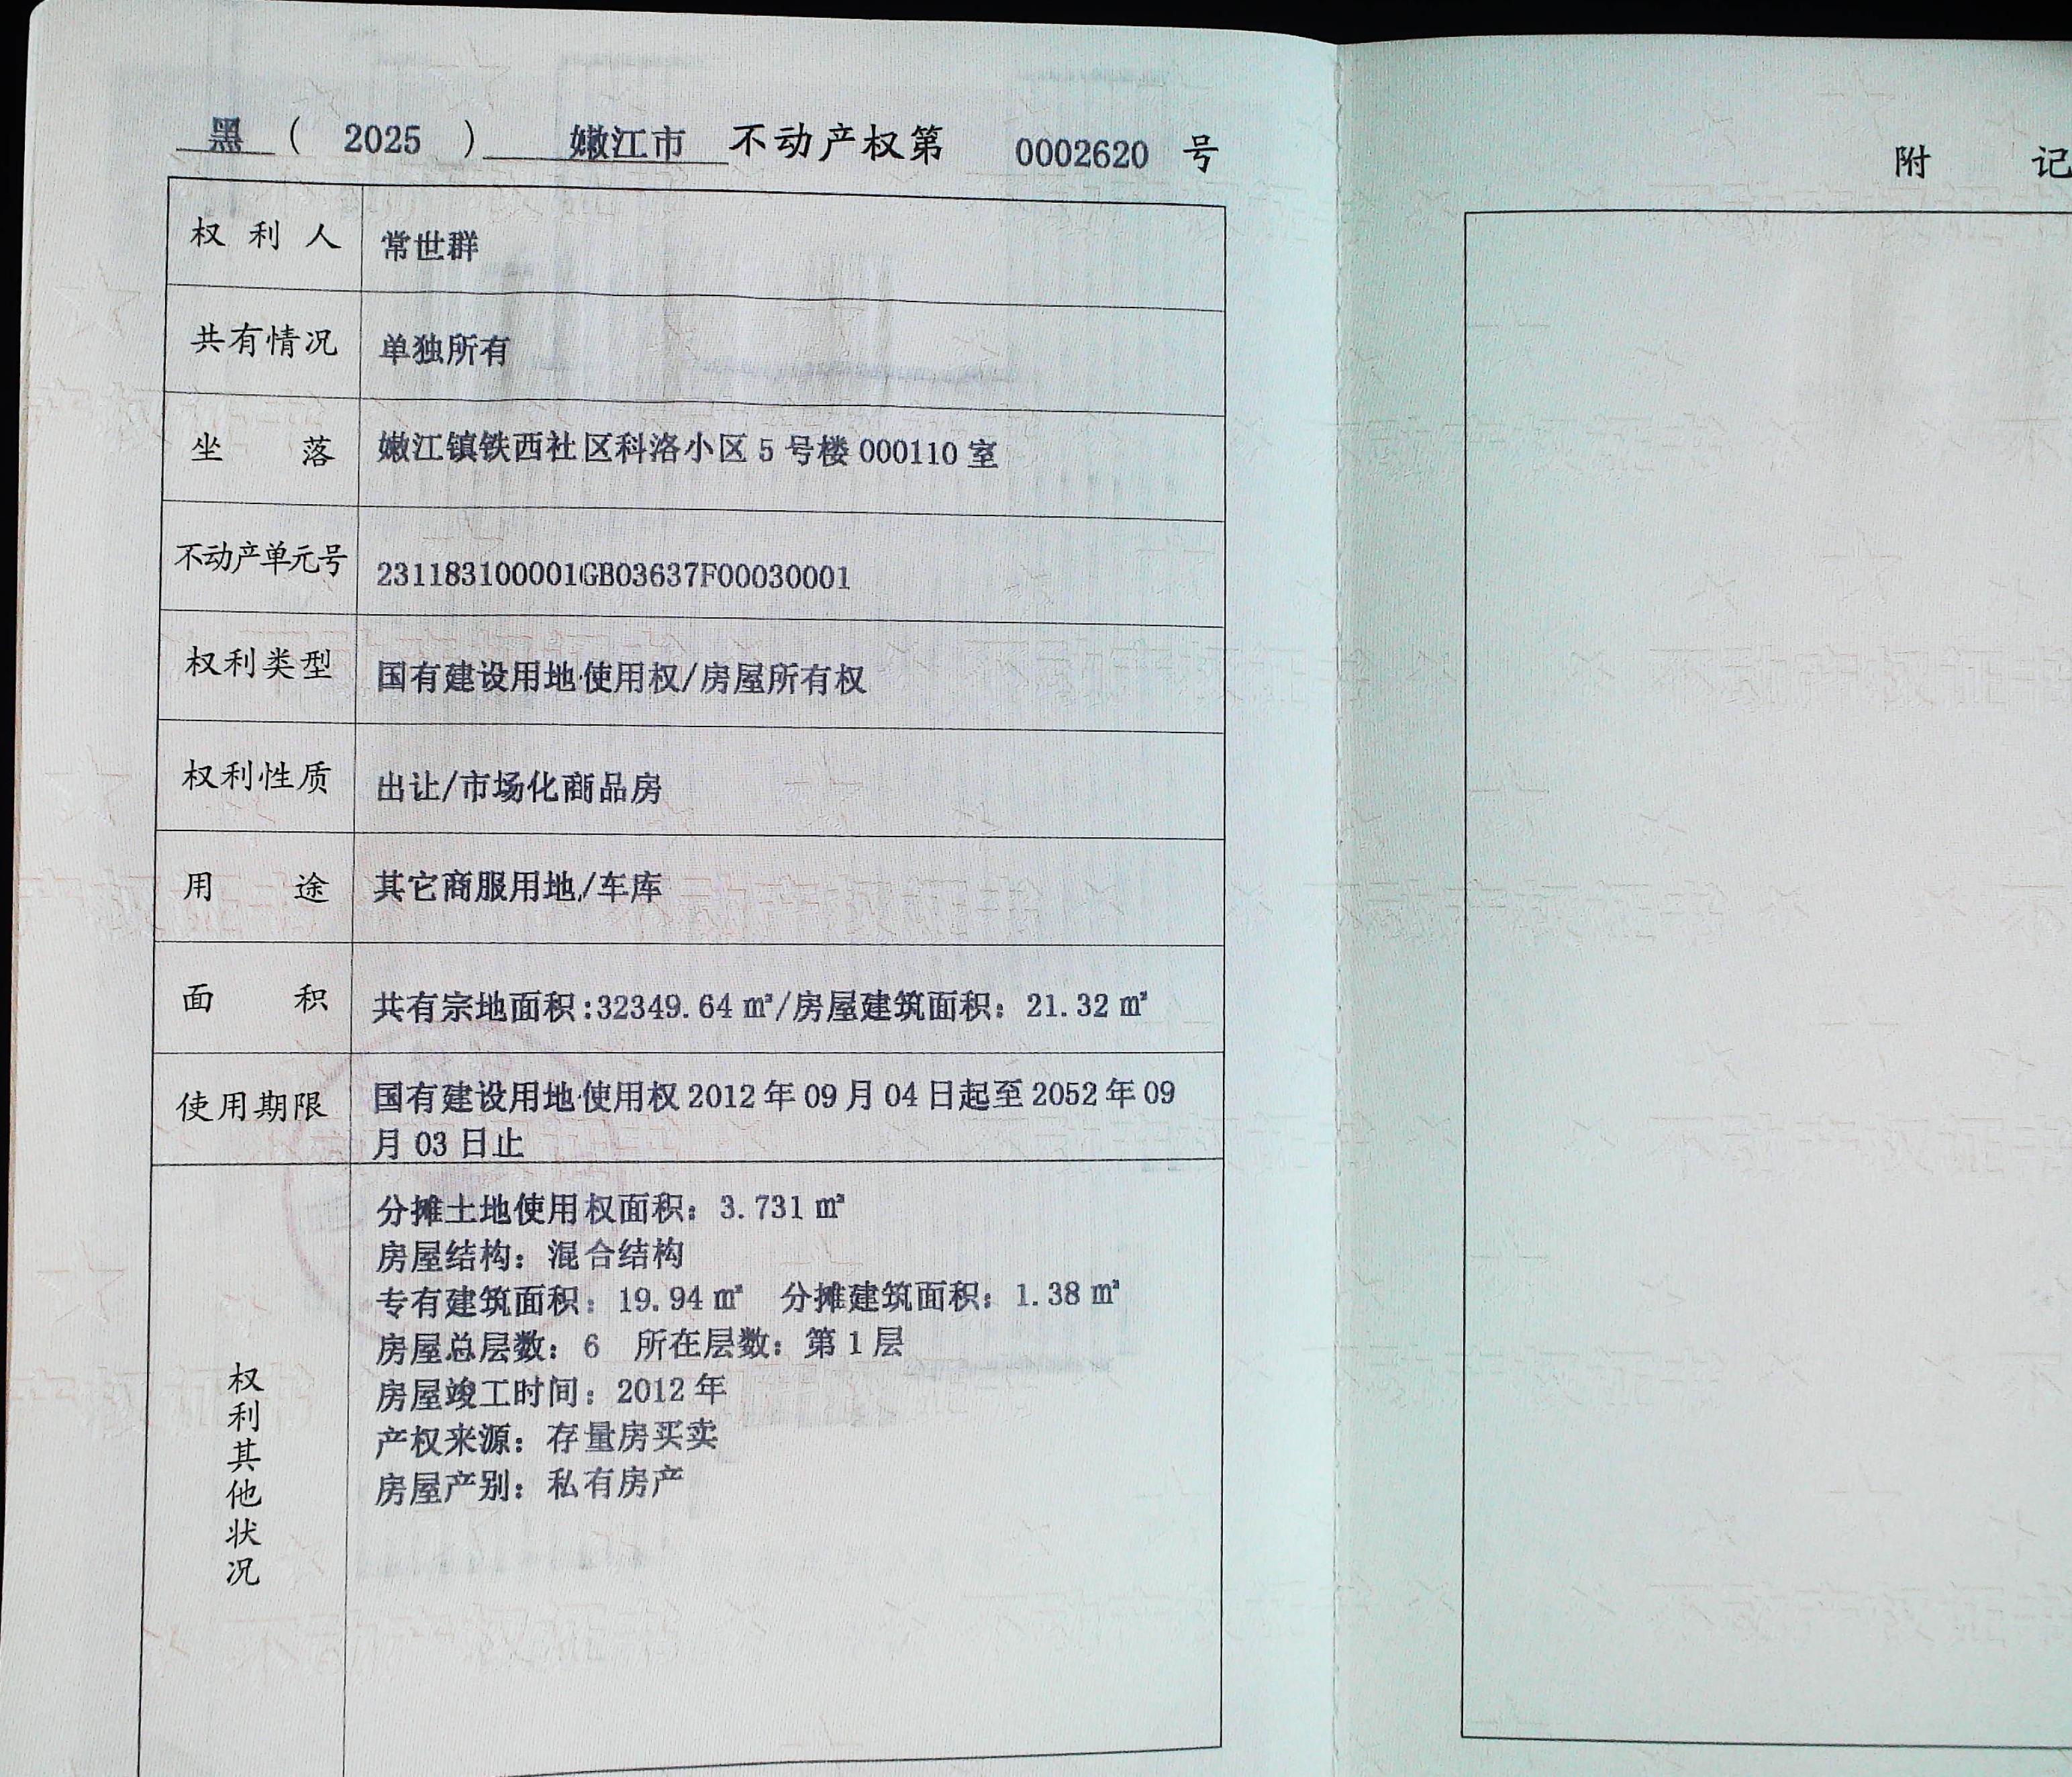 黑 ( 2025 ) 嫩江市 不动产权第 0002620 号
权利人 常世群
共有情况 单独所有
坐落 嫩江镇铁西社区科洛小区 5 号楼 000110 室
不动产单元号 231183100001GB03637F00030001
权利类型 国有建设用地使用权/房屋所有权
权利性质 出让/市场化商品房
用途 其它商服用地/车库
面积 共有宗地面积:32349.64 ㎡/房屋建筑面积：21.32 ㎡
使用期限 国有建设用地使用权 2012 年 09 月 04 日起至 2052 年 09
月 03 日止
权利其他状况
分摊土地使用权面积：3.731 ㎡
房屋结构：混合结构
专有建筑面积：19.94 ㎡ 分摊建筑面积：1.38 ㎡
房屋总层数：6 所在层数：第 1 层
房屋竣工时间：2012 年
产权来源：存量房买卖
房屋产别：私有房产
附 记